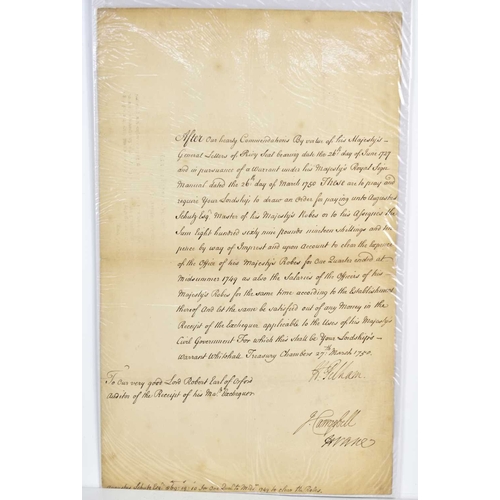 After Our hearty Commendations By vertue of his Majesty's
General Letters of Privy Seal bearing date the 26th day of June 1727
and in pursuance of a Warrant under his Majesty's Royal Sign
Manual dated the 26th day of March 1750 These are to pray and
require Your Lordship to draw an Order for paying unto Augustus
Schutz Esqr Master of his Majesty's Robes or to his Assignes the
Sum Eight hundred sixty nine pounds nineteen shillings and ten
pence by way of Imprest and upon Account to clear the Expence
of the Office of his Majesty's Robes for One Quarter ended at
Midsummer 1749 as also the Salaries of the Officers of his
Majesty's Robes for the same time according to the Establishment
thereof And let the same be satisfied out of any Money in the
Receipt of the Exchequer applicable to the Uses of his Majesty's
Civil Government For which this shall be Your Lordship's
Warrant Whitehall Treasury Chambers 27th March 1750.
H Pelham
To Our very good Lord Robert Earl of Orford
Auditor of the Receipt of his Mats Exchequer
J Campbell
Schutz Esqr 869 19 10 for One Quar to Midsr 1749 to clear the Robes